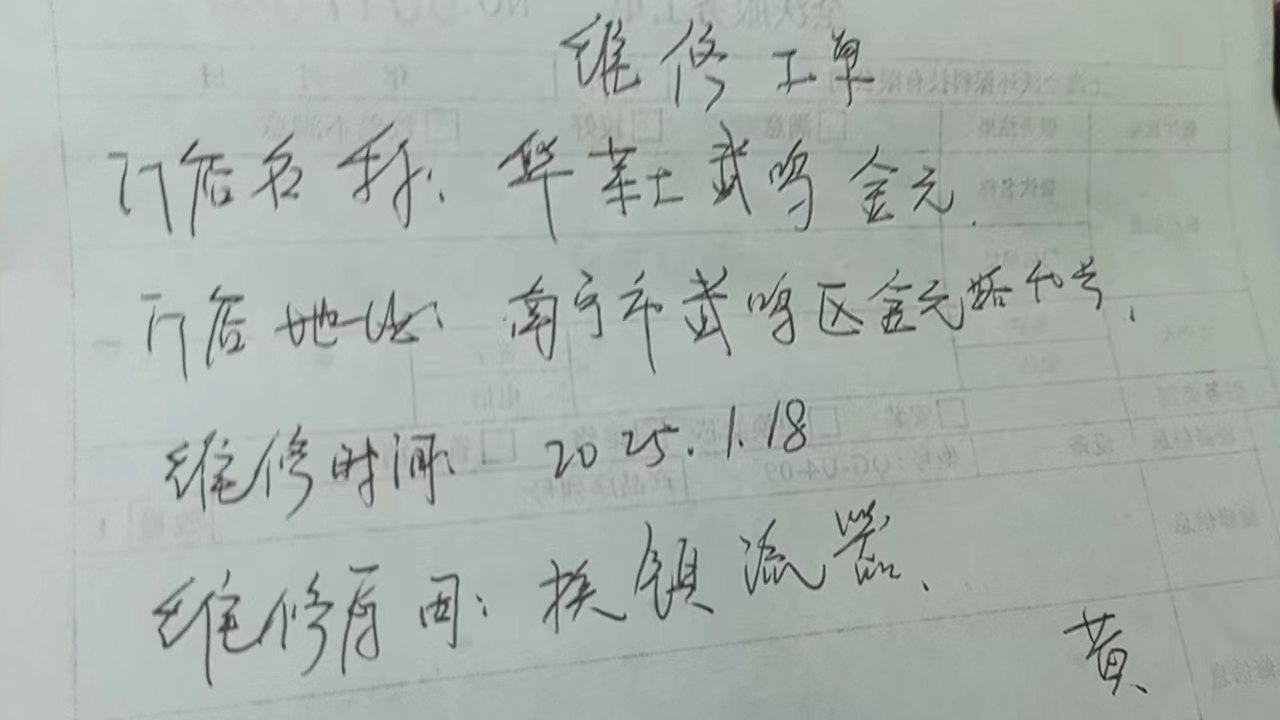 维修工单
门店名称: 华莱士武鸣金元.
门店地址: 南宁市武鸣区金元路
维修时间: 2025.1.18
维修原因: 换镇流器、
黄